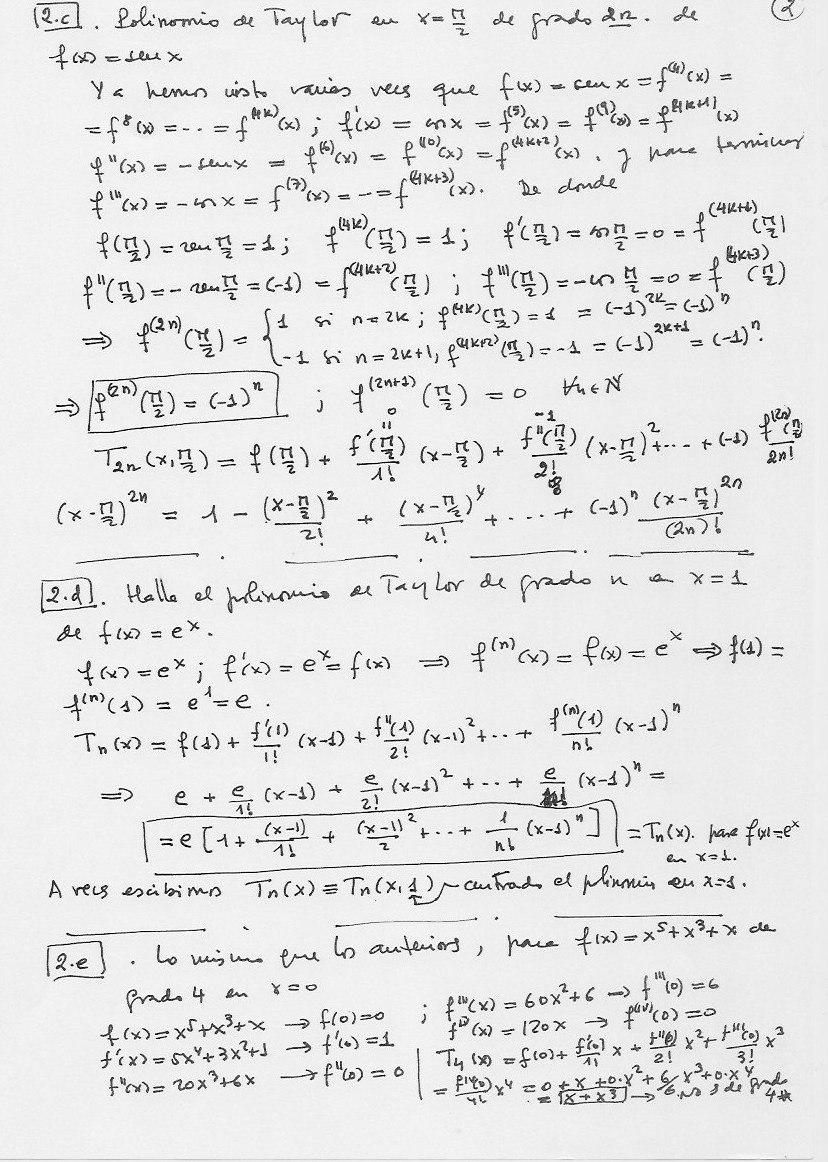 2
2.c. Polinomio de Taylor en x = π/2 de grado 2n. de
f(x) = sen x
Ya hemos visto varias veces que f(x) = sen x = f⁽⁴⁾(x) =
= f⁸(x) = ... = f⁽⁴ᵏ⁾(x) ; f'(x) = cos x = f⁽⁵⁾(x) = f⁽⁹⁾(x) = f⁽⁴ᵏ⁺¹⁾(x)
f''(x) = -sen x = f⁽⁶⁾(x) = f⁽¹⁰⁾(x) = f⁽⁴ᵏ⁺²⁾(x). y para terminar
f'''(x) = -cos x = f⁽⁷⁾(x) = -- = f⁽⁴ᵏ⁺³⁾(x). De donde
f(π/2) = sen π/2 = 1 ; f⁽⁴ᵏ⁾(π/2) = 1 ; f'(π/2) = cos π/2 = 0 = f⁽⁴ᵏ⁺¹⁾(π/2)
f''(π/2) = - sen π/2 = (-1) = f⁽⁴ᵏ⁺²⁾(π/2) ; f'''(π/2) = -cos π/2 = 0 = f⁽⁴ᵏ⁺³⁾(π/2)
⇒ f⁽²ⁿ⁾(π/2) = { 1 si n = 2k ; f⁽⁴ᵏ⁾(π/2) = 1 = (-1)²ᵏ = (-1)ⁿ
-1 si n = 2k+1, f⁽⁴ᵏ⁺²⁾(π/2) = -1 = (-1)²ᵏ⁺¹ = (-1)ⁿ.
⇒ f⁽²ⁿ⁾(π/2) = (-1)ⁿ ; f⁽²ⁿ⁺¹⁾(π/2) = 0 ∀n∈N
0 -1
T₂ₙ(x, π/2) = f(π/2) + f'(π/2)/1! (x-π/2) + f''(π/2)/2! (x-π/2)² + ... + (-1) f⁽²ⁿ⁾(π/2)/2n!
(x-π/2)²ⁿ = 1 - (x-π/2)²/2! + (x-π/2)⁴/4! + ... + (-1)ⁿ (x-π/2)²ⁿ/(2n)!
2.d. Halla el polinomio de Taylor de grado n en x = 1
de f(x) = eˣ.
f(x) = eˣ ; f'(x) = eˣ = f(x) ⇒ f⁽ⁿ⁾(x) = f(x) = eˣ ⇒ f(1) =
f⁽ⁿ⁾(1) = e¹ = e.
Tₙ(x) = f(1) + f'(1)/1! (x-1) + f''(1)/2! (x-1)² + ... + f⁽ⁿ⁾(1)/n! (x-1)ⁿ
⇒ e + e/1! (x-1) + e/2! (x-1)² + ... + e/n! (x-1)ⁿ =
= e [1 + (x-1)/1! + (x-1)²/2 + ... + 1/n! (x-1)ⁿ] = Tₙ(x). para f(x) = eˣ
en x=1.
A veces escribimos Tₙ(x) ≡ Tₙ(x, 1) centrado el polinomio en x=1.
2.e. Lo mismo que los anteriores, para f(x) = x⁵ + x³ + x de
grado 4 en x = 0
f(x) = x⁵ + x³ + x → f(0) = 0
f'(x) = 5x⁴ + 3x² + 1 → f'(0) = 1
f''(x) = 20x³ + 6x → f''(0) = 0
; f'''(x) = 60x² + 6 → f'''(0) = 6
f⁽ᴵⱽ⁾(x) = 120x → f⁽ᴵⱽ⁾(0) = 0
T₄(x) = f(0) + f'(0)/1! x + f''(0)/2! x² + f'''(0)/3! x³
= f⁽ᴵⱽ⁾(0)/4! x⁴ = 0 + x + 0·x² + 6/6 x³ + 0·x⁴
= x + x³ → no es de grado 4